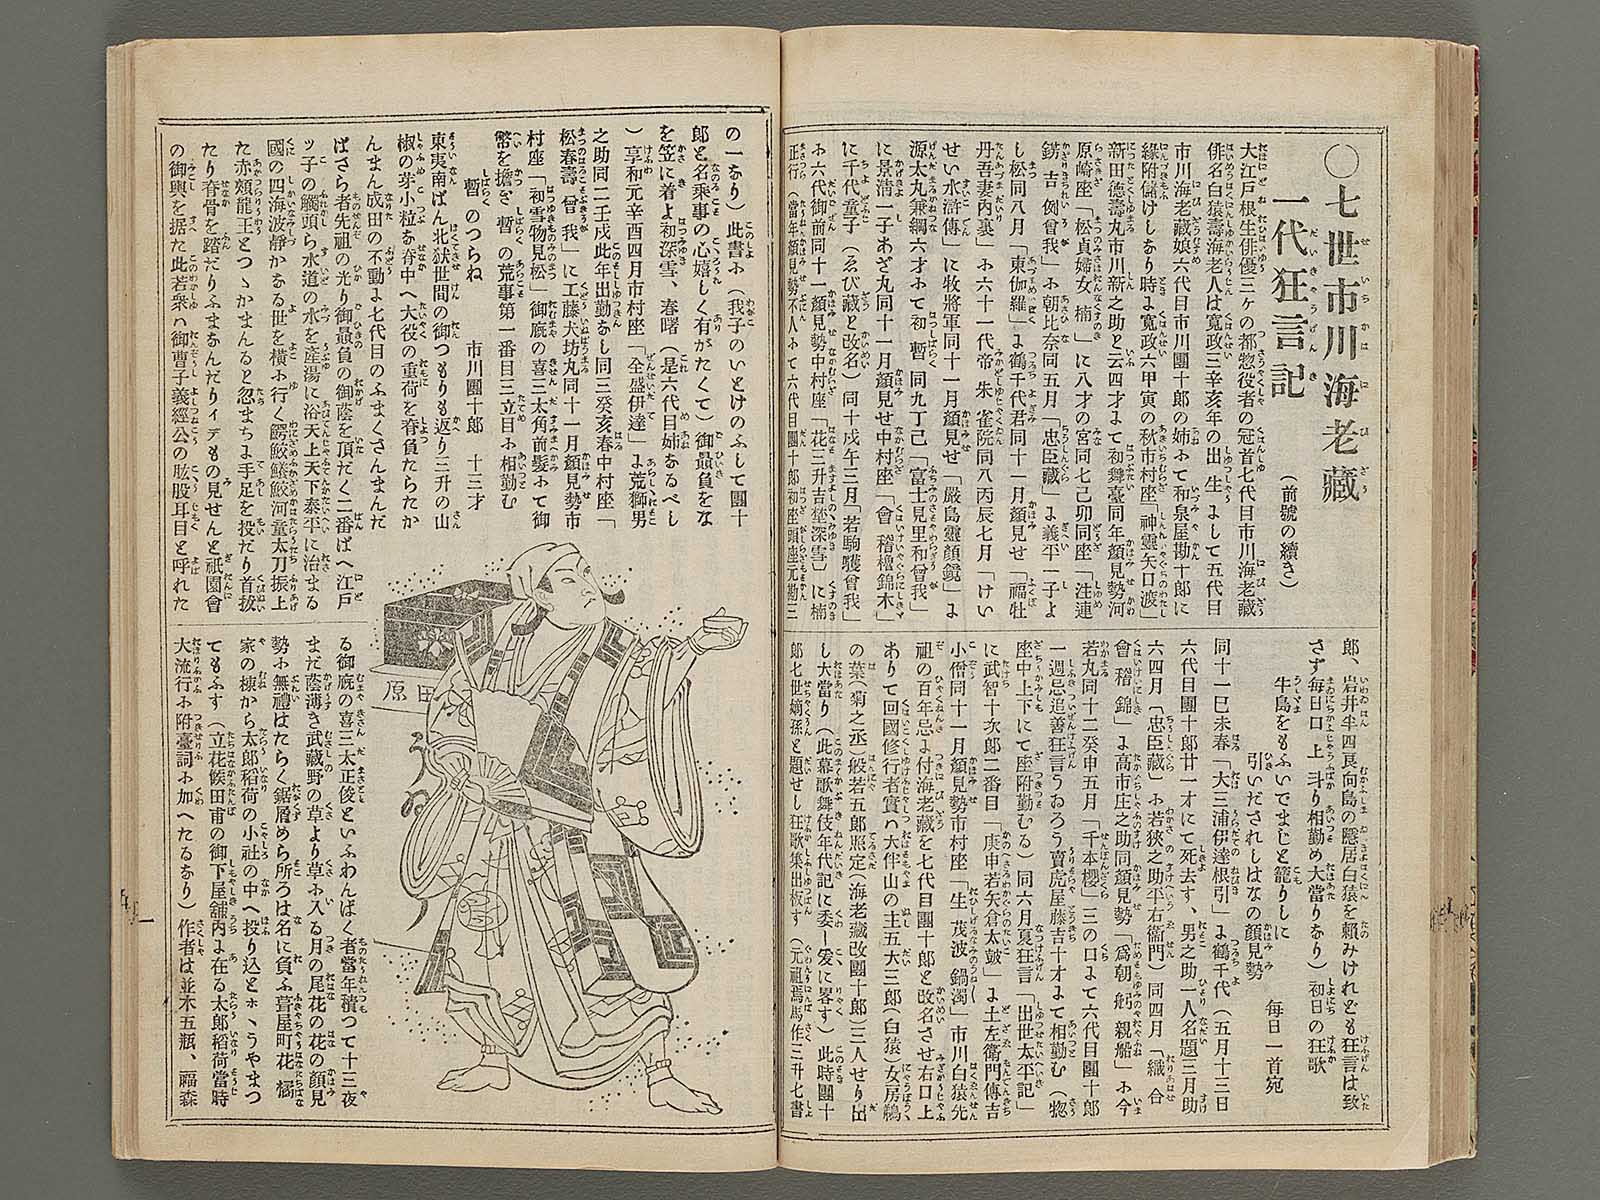 〇七世市川海老藏
一代狂言記
（前號の續き）
大江戸根生俳優三ヶの都惣役者の冠首七代目市川海老藏
俳名白猿壽海老人は寬政三辛亥年の出生よして五代目
市川海老藏娘六代目市川團十郎の姉ふて和泉屋勘十郎に
緣附儲けしなり時よ寬政六甲寅の秋市村座「神靈矢口渡」
新田德壽丸市川新之助と云四才よて初舞臺同年顏見勢河
原崎座「松貞婦女楠」に八才の宮同七己卯同座「注連
錺吉例曾我」ふ朝比奈同五月「忠臣藏」よ義平一子よ
し松同八月「東伽羅」よ鶴千代君同十一月顏見せ「福牡
丹吾妻内裏」ふ六十一代帝朱雀院同八丙辰七月「けい
せい水滸傳」に牧將軍同十一月顏見せ「嚴島靈顏鏡」よ
源太丸兼綱六才ふて初暫同九丁己「富士見里和曾我」
に景淸一子あざ丸同十一月顏見せ中村座「會稽櫓錦木」
に千代童子（ゑび藏と改名）同十戌午三月「若駒驪曾我」
ふ六代御前同十一顏見勢中村座「花三升吉埜深雪」に楠
正行（當年顏見勢不人ふて六代目團十郎和座頭座元勘三
郎、岩井半四良向島の隱居白猿を賴みけれども狂言は致
さず每日口上斗り相勤め大當りなり）初日の狂歌
牛島をもふいでまじと籠りしに
引いだされしはなの顏見勢
每日一首宛
同十一巳未春「大三浦伊達根引」よ鶴千代（五月十三日
六代目團十郎廿一才にて死去す、男之助一人名題三月助
六四月「忠臣藏」ふ若狹之助平右衞門）同四月「織合
會稽錦」よ高市庄之助同顏見勢「爲朝躬親船」ふ今
若丸同十二癸申五月「千本櫻」三の口よて六代目團十郎
一週忌追善狂言うゐろう賣虎屋藤吉十才よて相勤む（惣
座中上下にて座附勤むる）同六月夏狂言「出世太平記」
に武智十次郎二番目「庚申若矢倉太皷」よ土左衞門傳吉
小僧同十一月顏見勢市村座「生茂波鍋濁」市川白猿先
祖の百年忌よ付海老藏を七代目團十郎と改名させ右口上
ありて回國修行者實ハ大伴山の主五大三郎（白猿）女房鵜
の葉（菊之丞）般若五郎照定（海老藏改團十郎）三人せり出
し大當り（此幕歌舞伎年代記に委し爰に畧す）此時團十
郎七世嫡孫と題せし狂歌集出板す（元祖焉馬作三升七書
の一なり）此書ふ（我子のいとけのふして團十
郎と名乘事の心嬉しく有がたくて）御贔負をな
を笠に着よ和深雪、春曙（是六代目姉なるべし
）享和元辛酉四月市村座「全盛伊達」よ荒獅男
之助同二壬戌此年出勤なし同三癸亥春中村座「
松春壽曾我」に工藤犬坊丸同十一月顏見勢市
村座「初雪物見松」御廐の喜三太角前髮ふて御
幣を擔ぎ暫の荒事第一番目三立目ふ相勤む
暫のつらね
市川團十郎　十三才
東夷南ばん北狄世間の御つもりも返り三升の山
椒の芽小粒な脊中へ大役の重荷を脊負たらたか
んまん成田の不動よ七代目のふまくさんまんだ
ばさら者先祖の光り御贔負の御蔭を頂だく二番ばへ江戸
ッ子の觸頭ら水道の水を産湯に浴天上天下泰平に治まる
國の四海波靜かなる世を橫ふ行く鰐鮫鱶鮫河童太刀振上
た赤頰龍王とつゝかまんると忽まちよ手足を投だり首拔
たり脊骨を踏だりふまなんだりィデもの見せんと祇園會
の御輿を据た此若衆ハ御曹子義經公の肱股耳目と呼れた
る御廐の喜三太正俊といふわんぱく者當年積つて十三夜
まだ蔭薄き武藏野の草より草ふ入る月の尾花の花の顏見
勢ふ無禮はたらく鋸屑めら所ろは名に負ふ葺屋町花橘
家の棟から太郎稻荷の小社の中へ投り込とホヽうやまつ
てもふす（立花候田甫の御下屋舖内よ在る太郎稻荷當時
大流行ふ附臺詞ふ加へたるなり）作者は並木五瓶、福森
原田
うゐろう